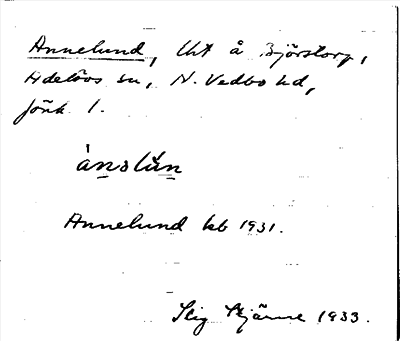 Annelund, Uht å Björstorp,
Adelövs sn, N. Vedbo hd,
Jönk l.
ànəlún
Annelund kb 1931.
Stig Bjärme 1933.